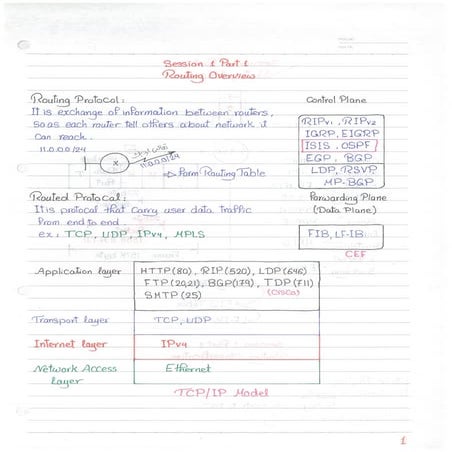 Session 1 Part 1
Routing Overview
Routing Protocol:
It is exchange of information between routers,
so as each router tell others about network it
Can reach.
11.0.0.0/24
11.0.0.0/24
Form Routing Table
Control Plane
RIPv1, RIPv2
IGRP, EIGRP
ISIS, OSPF
EGP, BGP
LDP, RSVP
MP-BGP
Routed Protocol:
It is protocol that carry user data traffic
From end to end
ex: TCP, UDP, IPv4, MPLS
Forwarding Plane
(Data Plane)
FIB, LFIB
CEF
Application layer
HTTP(80), RIP(520), LDP(646)
FTP(20,21), BGP(179), TDP(711)
SMTP(25)
(Cisco)
Transport layer
TCP, UDP
Internet layer
IPv4
Network Access
layer
Ethernet
TCP/IP Model
1